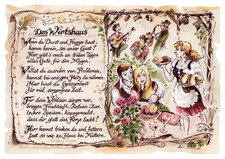 Das Wirtshaus
Wenn du Durst und Hunger hast,
komm herein, sei unser Gast!
Hier gibt's auch an trüben Tagen
alles Gute, für den Magen.
Willst du ausruh'n von Problemen,
kannst bei uns gern Platz du nehmen.
Hier hast du Gelegenheit
für viel, vergnügte Zeit.
Für dein Wohlsein sorgen wir,
bringen Fruchtsaft, Rotwein, Bier
leckre Speisen, hausgemacht,
dass dir gleich das Herze lacht!
Hier kannst trinken du und futtern
fast so wie zu Haus bei Muttern.